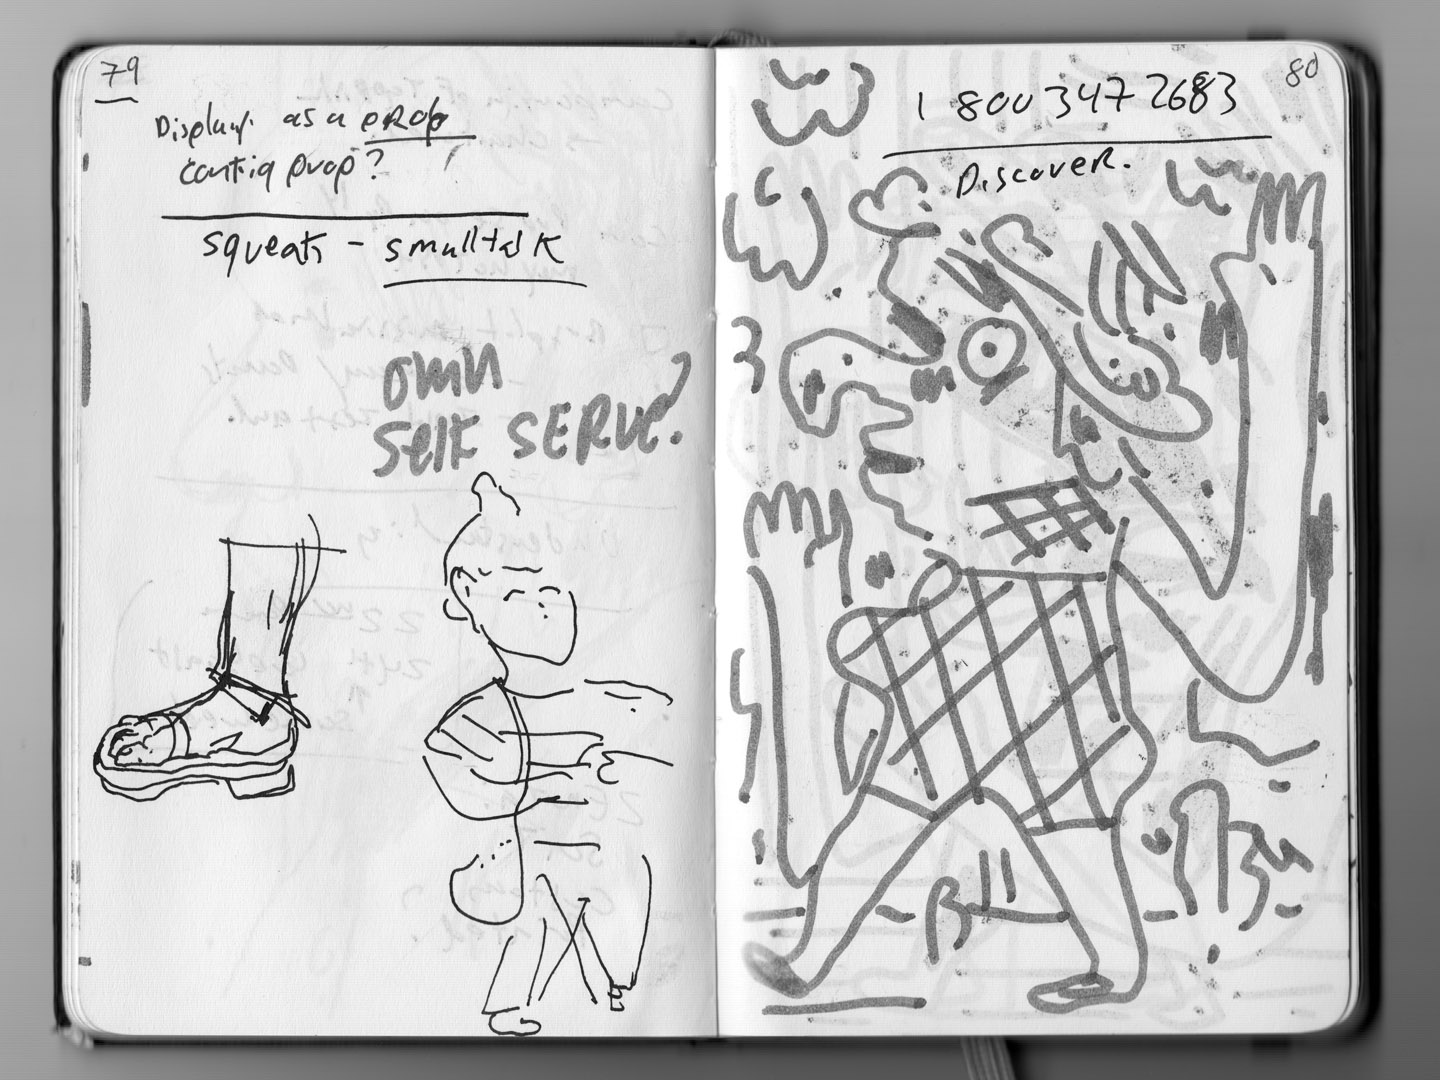 79
Display as a prop
config prop?
squeak - smalltalk
own
self SERVE?
80
1 800 347 2683
Discover.